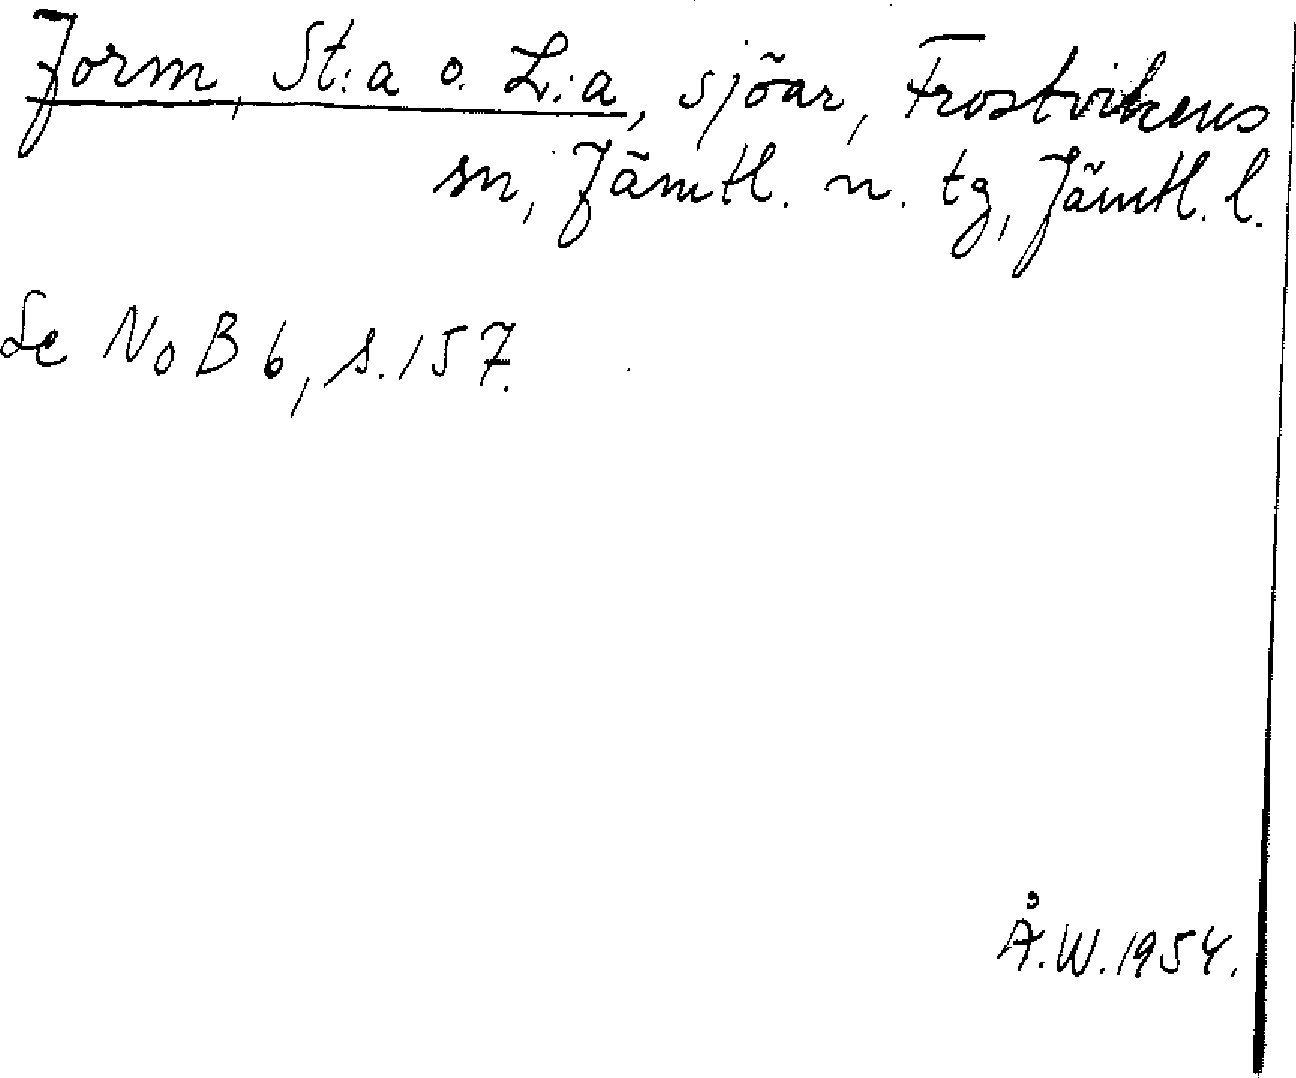 Jorm, St:a o. L:a, sjöar, Frostvikens
sn, Jämtl. n. tg, Jämtl. l.
Se NoB 6, s. 157.
Å.W. 1954.